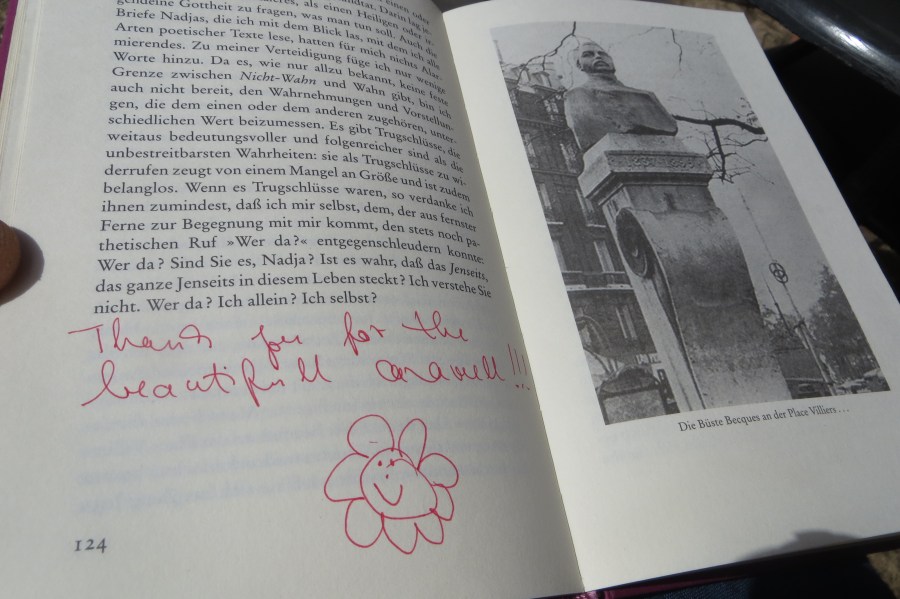 gendeine Gottheit zu fragen, was man tun soll. Auch die
Briefe Nadjas, die ich mit dem Blick las, mit dem ich alle
Arten poetischer Texte lese, hatten für mich nichts Alar-
mierendes. Zu meiner Verteidigung füge ich nur wenige
Worte hinzu. Da es, wie nur allzu bekannt, keine feste
Grenze zwischen Nicht-Wahn und Wahn gibt, bin ich
auch nicht bereit, den Wahrnehmungen und Vorstellun-
gen, die dem einen oder dem anderen zugehören, unter-
schiedlichen Wert beizumessen. Es gibt Trugschlüsse, die
weitaus bedeutungsvoller und folgenreicher sind als die
unbestreitbarsten Wahrheiten: sie als Trugschlüsse zu wi-
derrufen zeugt von einem Mangel an Größe und ist zudem
belanglos. Wenn es Trugschlüsse waren, so verdanke ich
ihnen zumindest, daß ich mir selbst, dem, der aus fernster
Ferne zur Begegnung mit mir kommt, den stets noch pa-
thetischen Ruf »Wer da?« entgegenschleudern konnte:
Wer da? Sind Sie es, Nadja? Ist es wahr, daß das Jenseits,
das ganze Jenseits in diesem Leben steckt? Ich verstehe Sie
nicht. Wer da? Ich allein? Ich selbst?
Thank you for the
beautifull caravell!!!
124
Die Büste Becques an der Place Villiers . . .